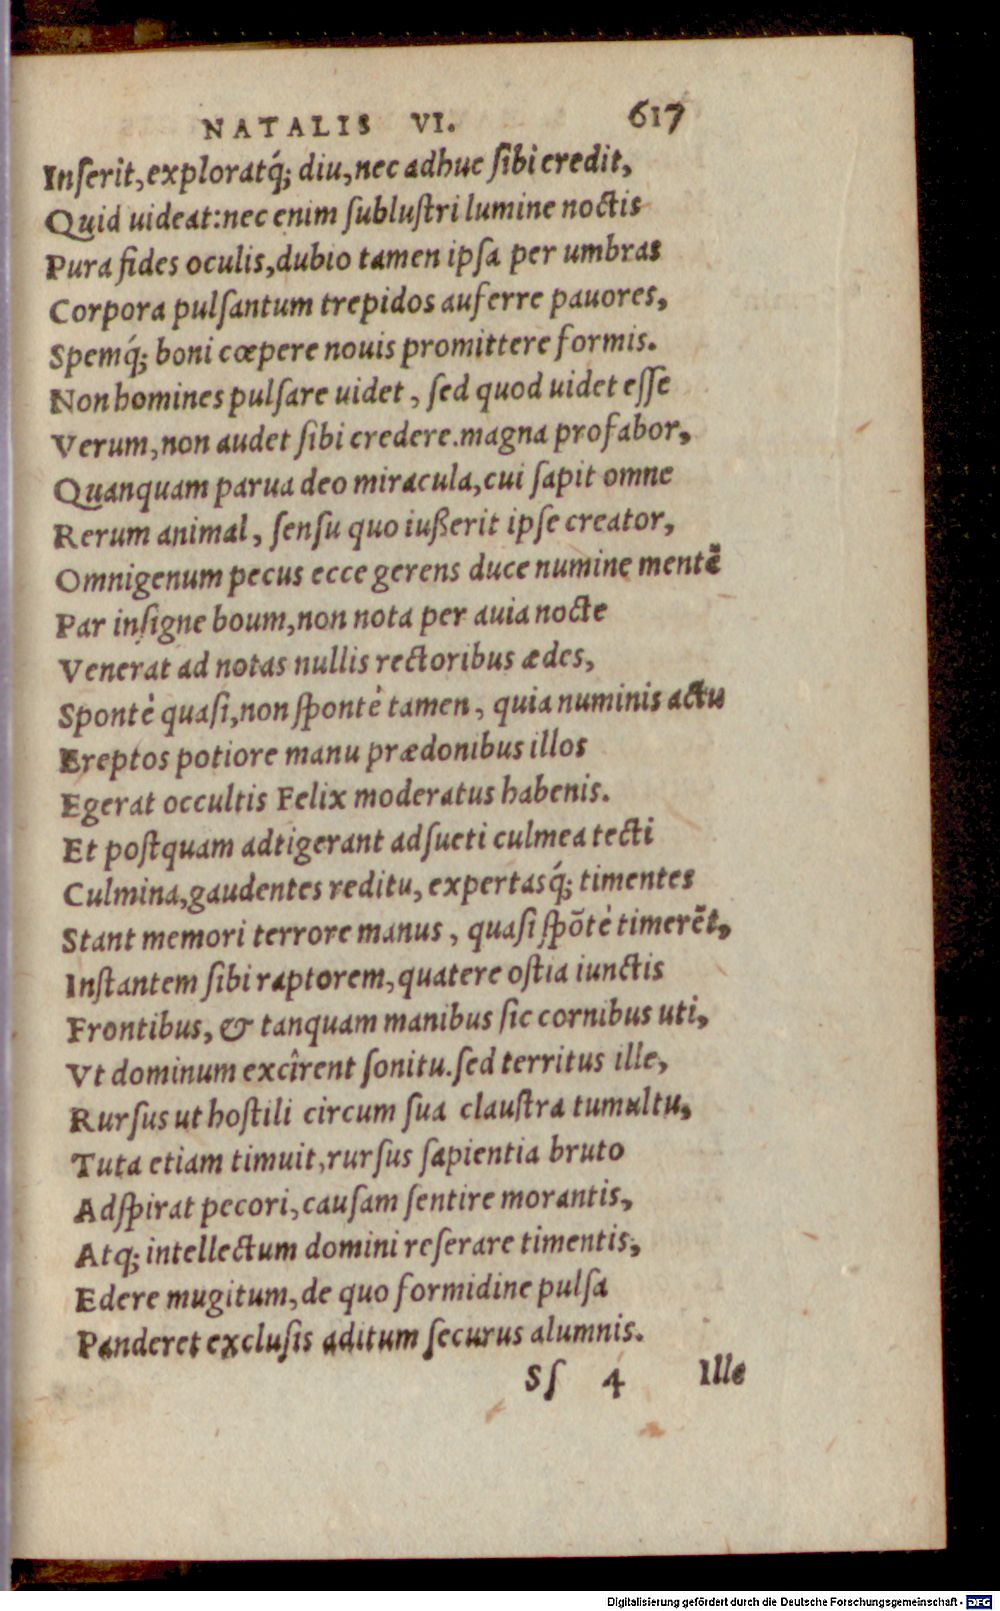 NATALIS VI. 617
Inſerit, exploratq́; diu, nec adhuc ſibi credit,
Quid uideat: nec enim ſubluſtri lumine noctis
Pura fides oculis, dubio tamen ipſa per umbras
Corpora pulſantum trepidos auferre pauores,
Spemq́; boni cœpere nouis promittere formis.
Non homines pulſare uidet, ſed quod uidet eſſe
Verum, non audet ſibi credere. magna profabor,
Quanquam parua deo miracula, cui ſapit omne
Rerum animal, ſenſu quo iußerit ipſe creator,
Omnigenum pecus ecce gerens duce numine mentē
Par inſigne boum, non nota per auia nocte
Venerat ad notas nullis rectoribus ædes,
Spontè quaſi, non ſpontè tamen, quia numinis actu
Ereptos potiore manu prædonibus illos
Egerat occultis Felix moderatus habenis.
Et poſtquam adtigerant adſueti culmea tecti
Culmina, gaudentes reditu, expertasq́; timentes
Stant memori terrore manus, quaſi ſpõtè timerẽt,
Inſtantem ſibi raptorem, quatere oſtia iunctis
Frontibus, & tanquam manibus ſic cornibus uti,
Vt dominum excîrent ſonitu. ſed territus ille,
Rurſus ut hoſtili circum ſua clauſtra tumultu,
Tuta etiam timuit, rurſus ſapientia bruto
Adſpirat pecori, cauſam ſentire morantis,
Atq; intellectum domini reſerare timentis,
Edere mugitum, de quo formidine pulſa
Panderet excluſis aditum ſecurus alumnis.
Sſ 4 Ille
Digitalisierung gefördert durch die Deutsche Forschungsgemeinschaft - DFG